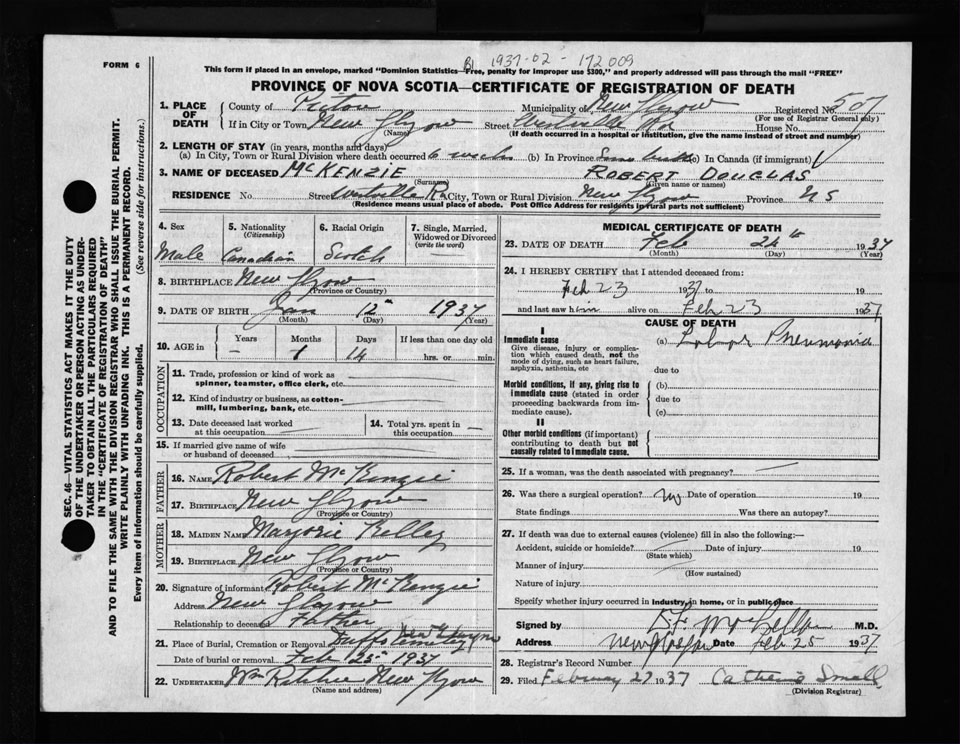 B 1937-02-172009
FORM 6
This form if placed in an envelope, marked "Dominion Statistics—Free, penalty for improper use $300," and properly addressed will pass through the mail "FREE"
PROVINCE OF NOVA SCOTIA—CERTIFICATE OF REGISTRATION OF DEATH
1. PLACE OF DEATH
County of Pictou Municipality of New Glasgow Registered No. 507
(For use of Registrar General only)
If in City or Town New Glasgow Street Westville Rd House No.
(Name) (If death occurred in a hospital or institution, give the name instead of street and number)
2. LENGTH OF STAY (in years, months and days)
(a) In City, Town or Rural Division where death occurred 6 weeks (b) In Province Since birth (c) In Canada (if immigrant)
3. NAME OF DECEASED McKENZIE ROBERT DOUGLAS
(Surname) (Given name or names)
RESIDENCE No. Street Westville Rd City, Town or Rural Division New Glasgow Province N S
(Residence means usual place of abode. Post Office Address for residents in rural parts not sufficient)
SEC. 46—VITAL STATISTICS ACT MAKES IT THE DUTY
OF THE UNDERTAKER OR PERSON ACTING AS UNDER-
TAKER TO OBTAIN ALL THE PARTICULARS REQUIRED
IN THE "CERTIFICATE OF REGISTRATION OF DEATH"
AND TO FILE THE SAME WITH THE DIVISION REGISTRAR WHO SHALL ISSUE THE BURIAL PERMIT.
WRITE PLAINLY WITH UNFADING INK. THIS IS A PERMANENT RECORD.
Every item of information should be carefully supplied. (See reverse side for instructions.)
4. Sex 5. Nationality (Citizenship) 6. Racial Origin 7. Single, Married, Widowed or Divorced (write the word)
Male Canadian Scotch —
8. BIRTHPLACE New Glasgow
(Province or Country)
9. DATE OF BIRTH Jan 12th 1937
(Month) (Day) (Year)
10. AGE in Years Months Days If less than one day old
— 1 14 hrs. or min.
OCCUPATION
11. Trade, profession or kind of work as
spinner, teamster, office clerk, etc.
12. Kind of industry or business, as cotton-
mill, lumbering, bank, etc.
13. Date deceased last worked
at this occupation
14. Total yrs. spent in
this occupation
15. If married give name of wife
or husband of deceased
FATHER
16. NAME Robert McKenzie
17. BIRTHPLACE New Glasgow
(Province or Country)
MOTHER
18. MAIDEN NAME Marjorie Kelley
19. BIRTHPLACE New Glasgow
(Province or Country)
20. Signature of informant Robert McKenzie
Address New Glasgow
Relationship to deceased Father
21. Place of Burial, Cremation or Removal Duffs Cemetery
Date of burial or removal Feb 25th 1937
22. UNDERTAKER Wm Ritchie New Glasgow
(Name and address)
MEDICAL CERTIFICATE OF DEATH
23. DATE OF DEATH Feb 24th 1937
(Month) (Day) (Year)
24. I HEREBY CERTIFY that I attended deceased from:
Feb 23 1937 to 19
and last saw him alive on Feb 23 1937
CAUSE OF DEATH
I
Immediate cause (a) Lobar Pneumonia
Give disease, injury or complica-
tion which caused death, not the
mode of dying, such as heart failure,
asphyxia, asthenia, etc
due to
Morbid conditions, if any, giving rise to
immediate cause (stated in order
proceeding backwards from im-
mediate cause).
(b)
due to
(c)
II
Other morbid conditions (if important)
contributing to death but not
causally related to immediate cause.
25. If a woman, was the death associated with pregnancy?
26. Was there a surgical operation? no Date of operation 19
State findings Was there an autopsy?
27. If death was due to external causes (violence) fill in also the following:—
Accident, suicide or homicide? Date of injury 19
(State which)
Manner of injury
(How sustained)
Nature of injury
Specify whether injury occurred in industry, in home, or in public place
Signed by M.D.
Address New Glasgow Date Feb 25 1937
28. Registrar's Record Number
29. Filed February 27 1937 Catherine Small
(Division Registrar)